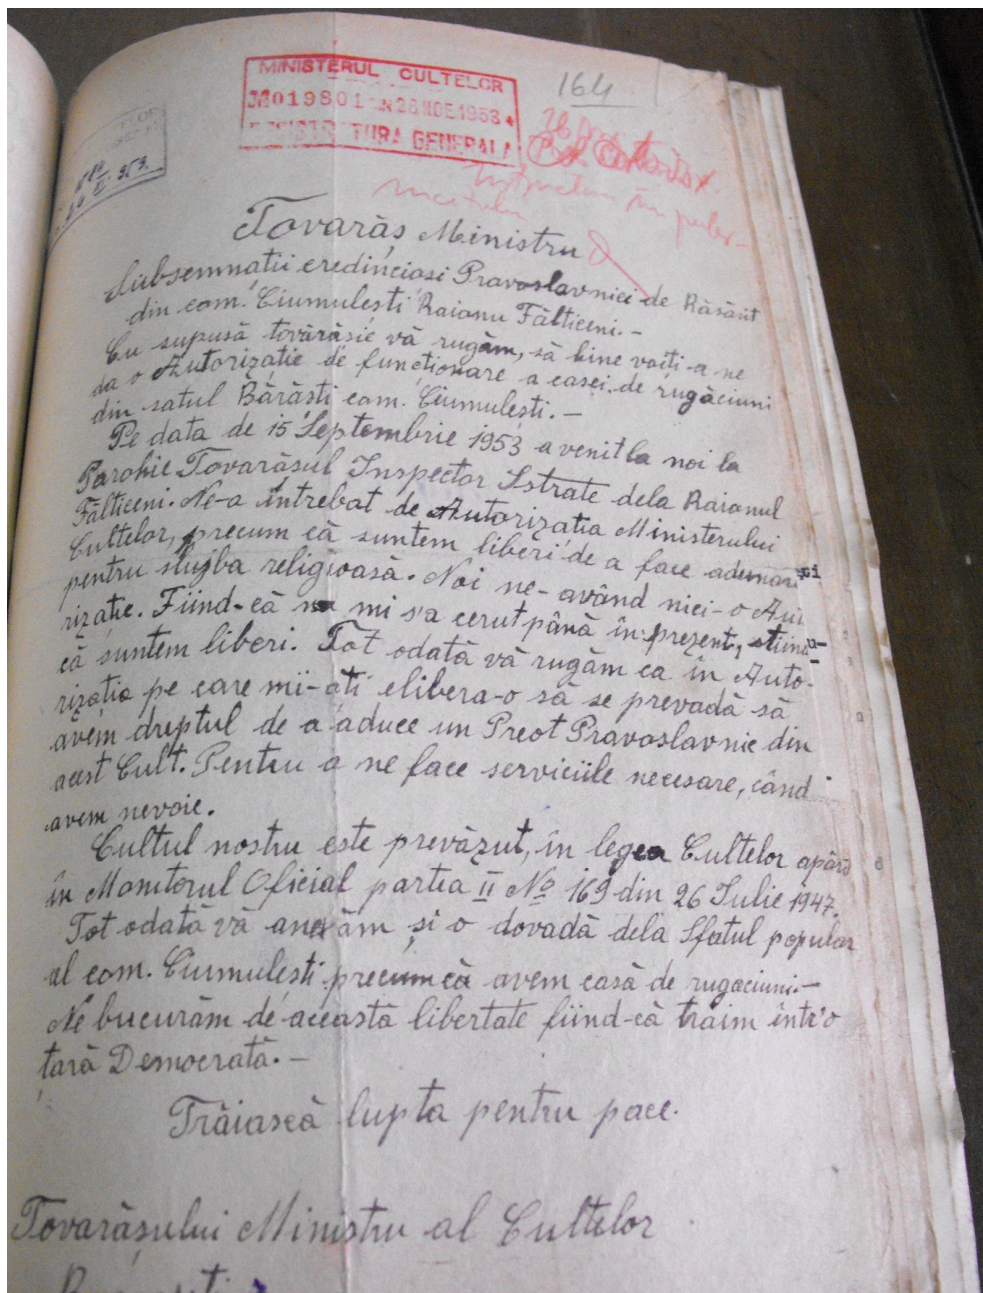 MINISTERUL CULTELOR
No 019801 * 26 NOE. 1953 *
REGISTRATURA GENERALA
164
Tovarăș Ministru
Subsemnații credincioși Pravoslavnici de Răsărit
din com. Ciumulești Raionu Fălticeni. -
Cu supusă tovărășie vă rugăm, să bine voiți-a ne
da o Autorizație de funcționare a casei de rugăciuni
din satul Bărăști com. Ciumulești. -
Pe data de 15 Septembrie 1953 a venit la noi la
Parohie Tovarășul Inspector Istrate dela Raionul
Fălticeni. Ne-a întrebat de Autorizația Ministerului
Cultelor, precum că suntem liberi de a face adunări
pentru slujba religioasă. Noi ne-având nici-o Auto-
rizație. Fiind-că nu mi s'a cerut până în prezent, știind
că suntem liberi. Tot odată vă rugăm ca în Auto-
rizația pe care mii-ați elibera-o să se prevadă să
avem dreptul de a aduce un Preot Pravoslavnic din
acest Cult. Pentru a ne face serviciile necesare, când
avem nevoie.
Cultul nostru este prevăzut, în legea Cultelor apăru
în Monitorul Oficial partea II No 169 din 26 Iulie 1947.
Tot odată vă anexăm și o dovadă dela Sfatul popular
al com. Ciumulești precum că avem casă de rugaciuni. -
Ne bucurăm de această libertate fiind-că trăim într'o
țară Democrată. -
Trăiască lupta pentru pace.
Tovarășului Ministru al Cultelor